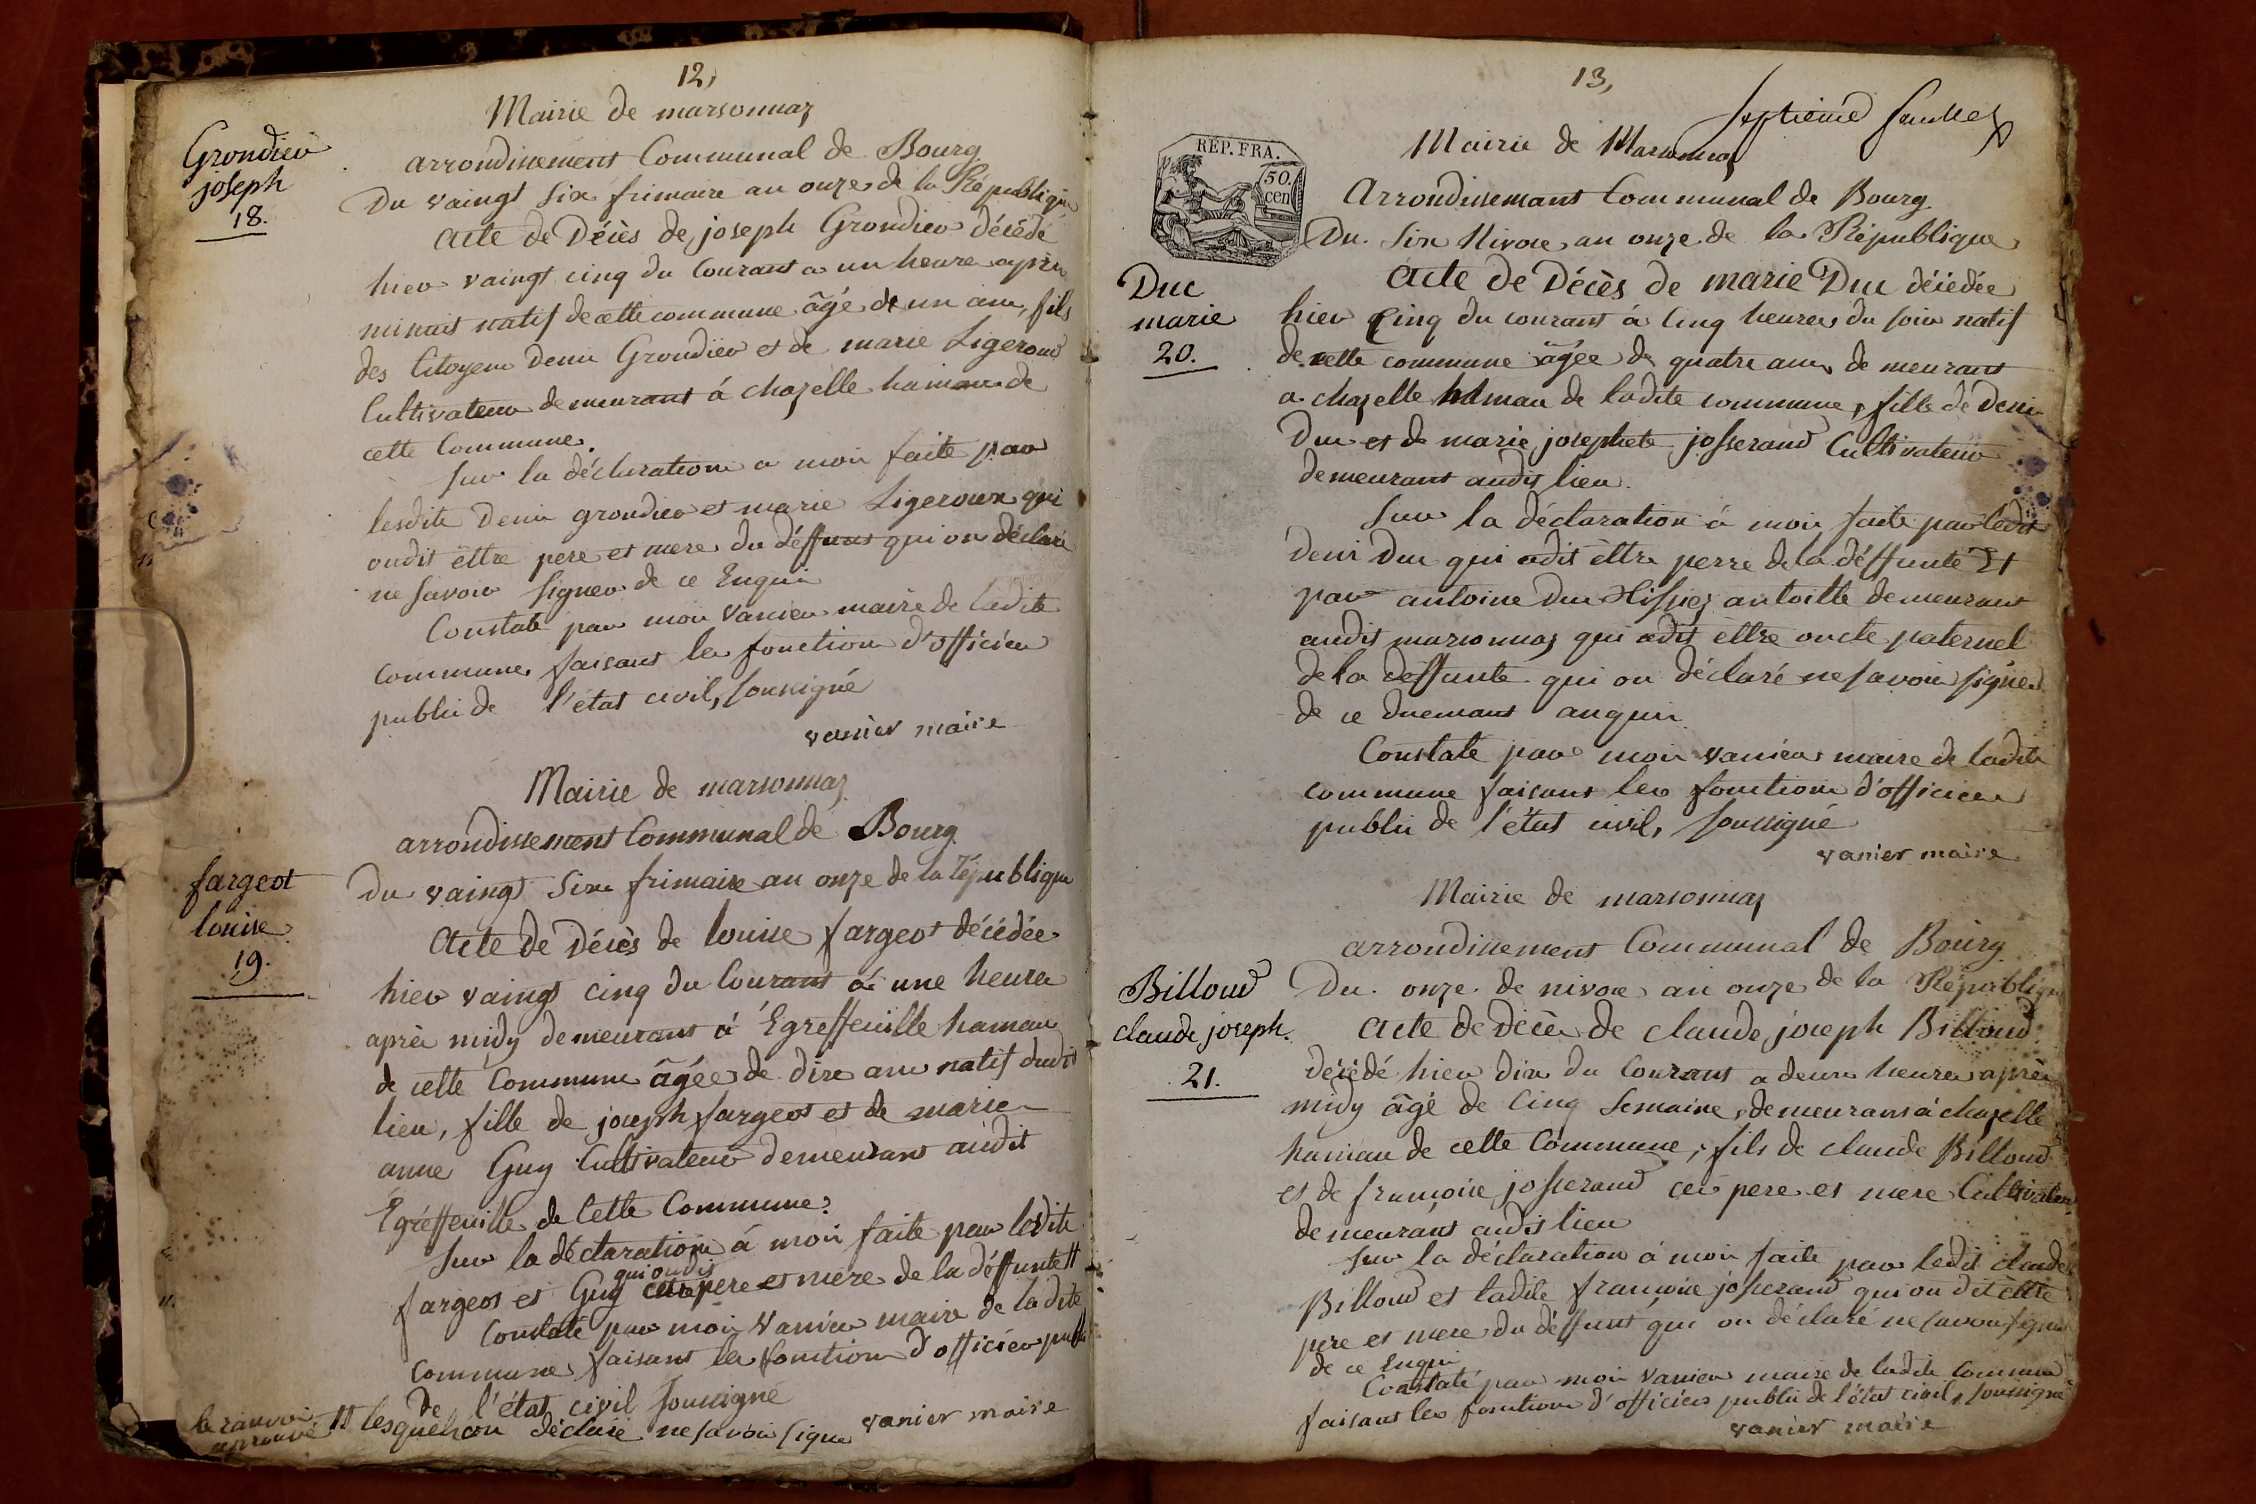 12,
Mairie de marsonnaz
Grondier
joseph
18.
arrondissement Communal de Bourg
Du vaingt six frimaire an onze de la République
acte de Décès de joseph Grondier décédé
hier vaingt cinq du Courant a un heure apres
minuit natif de cette commune âgé de un ans, fils
des Citoyens Denis Grondier et de marie Ligeroud
Cultivateur demeurant á chazelle hamau de
cette Commune.
sur la déclaration a moi faite par
lesdits Denis grondier et marie Ligeroux qui
ondit éttre pere et mere du déffunt qui on déclaré
ne savoir signer de ce Enquis
Constaté par moi vanier maire de ladite
commune, faisant les fonction d'officier
public de l'état civil, soussigné
vanier maire
Mairie de marsonnaz
fargeot
louise
19.
arrondissement Communal de Bourg
Du vaingt six frimaire an onze de la République
acte de Décès de louise fargeot décédée
hier vaingt cinq du Courant á une heure
après midy demeurant á Egreffeuille hamau
de cette Commune âgée de dix ans natif dudit
lieu, fille de joseph fargeot et de marie
anne Guy Cultivateur demeurant audit
Egréffeuille de Cette Commune.
sur la déclaration á moi faite par lesdits
qui ondit
fargeot et Guy éttre pere et mere de la déffunte #
Constaté par moi vanier maire de ladite
Commune faisant les fonction d'officier public
de l'état civil soussigné
vanier maire
le ranvoi
aprouvé
# lesquels on déclaré ne savoir signer
13,
septieme feuillet
Mairie de Marsonnaz
RÉP. FRA.
50.
cen
Arrondissemant Communal de Bourg
Du six Nivose an onze de la République
Duc
marie
20.
acte de Décès de marie Duc décédée
hier Cinq du courant á Cinq heures du soir natif
de cette commune âgée de quatre ans demeurant
a chazelle hamau de ladite commune, fille de Denis
Duc et de marie josephete josserand Cultivateur
demeurant audit lieu.
sur la déclaration á moi faite par ledit
deni Duc qui adit éttre perre de la déffunte Et
par antoine Duc demeurant
audit marsonnaz qui adit éttre oncle paternel
de la déffunte qui on déclaré ne savoir signer
de ce duemant anquis
Constaté par moi vanier maire de ladite
commune faisant les fonction d'officier
public de l'état civil, soussigné
vanier maire
Mairie de marsonnaz
arrondissement Communal de Bourg
Billoud
claude joseph.
21.
Du onze de nivose an onze de la République
acte de décès de claude joseph Billoud
décédé hier dix du Courant a deux heures après
midy âgé de Cinq semaine, demeurant á chazelle
hamau de cette Commune, fils de claude Billoud
et de françoise josserand ces pere et mere Cultivateur
demeurant audit lieu
sur la déclaration á moi faite par ledit claude
Billoud et ladite françoise josserand qui on dit éttre
pere et mere du déffunt qui on déclaré ne savoir signer
de ce Enquis
Constaté par moi vanier maire de ladite Commune
faisant les fonction d'officier public de l'état civil, soussigné
vanier maire